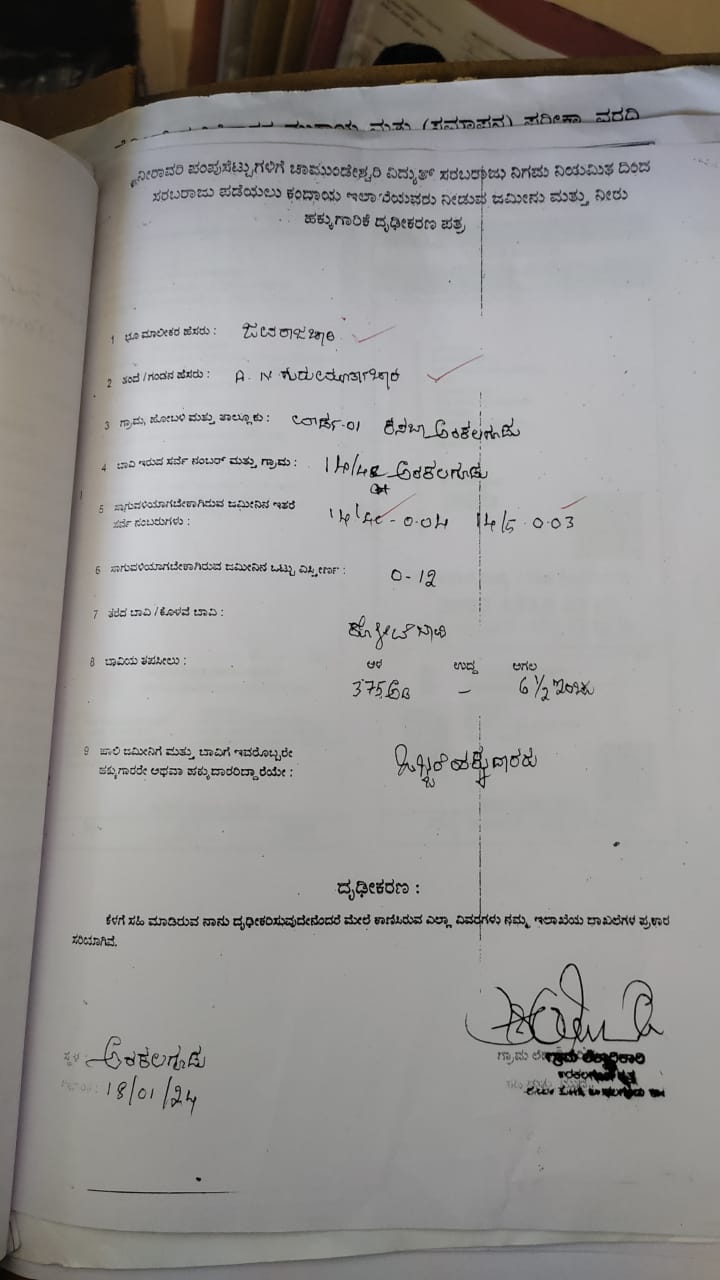 ಮತ್ತು (ಸಮಾಪನ) ಪರೀಕ್ಷಾ ವರದಿ
ನೀರಾವರಿ ಪಂಪುಸೆಟ್ಟುಗಳಿಗೆ ಚಾಮುಂಡೇಶ್ವರಿ ವಿದ್ಯುತ್ ಸರಬರಾಜು ನಿಗಮ ನಿಯಮಿತ ದಿಂದ
ಸರಬರಾಜು ಪಡೆಯಲು ಕಂದಾಯ ಇಲಾಖೆಯವರು ನೀಡುವ ಜಮೀನು ಮತ್ತು ನೀರು
ಹಕ್ಕುಗಾರಿಕೆ ದೃಢೀಕರಣ ಪತ್ರ
1 ಭೂ ಮಾಲೀಕರ ಹೆಸರು :
2 ತಂದೆ / ಗಂಡನ ಹೆಸರು : A. N
3 ಗ್ರಾಮ, ಹೋಬಳಿ ಮತ್ತು ತಾಲ್ಲೂಕು : ವಾರ್ಡ್-01 ಕಸಬಾ ಅರಕಲಗೂಡು
4 ಬಾವಿ ಇರುವ ಸರ್ವೆ ನಂಬರ್ ಮತ್ತು ಗ್ರಾಮ : ಅರಕಲಗೂಡು
5 ಸಾಗುವಳಿಯಾಗಬೇಕಾಗಿರುವ ಜಮೀನಿನ ಇತರೆ
ಸರ್ವೆ ನಂಬರುಗಳು : 0.04 14/5 0.03
6 ಸಾಗುವಳಿಯಾಗಬೇಕಾಗಿರುವ ಜಮೀನಿನ ಒಟ್ಟು ವಿಸ್ತೀರ್ಣ : 0-12
7 ತೆರೆದ ಬಾವಿ / ಕೊಳವೆ ಬಾವಿ :
8 ಬಾವಿಯ ತಪಸೀಲು : ಆಳ ಉದ್ದ ಅಗಲ
375 ಅಡಿ – 6 1/2 ಇಂಚು
9 ಖಾಲಿ ಜಮೀನಿಗೆ ಮತ್ತು ಬಾವಿಗೆ ಇವರೊಬ್ಬರೇ
ಹಕ್ಕುಗಾರರೇ ಅಥವಾ ಹಕ್ಕುದಾರರಿದ್ದಾರೆಯೇ : ಒಬ್ಬರೆ ಹಕ್ಕುದಾರರು
ದೃಢೀಕರಣ :
ಕೆಳಗೆ ಸಹಿ ಮಾಡಿರುವ ನಾನು ದೃಢೀಕರಿಸುವುದೇನೆಂದರೆ ಮೇಲೆ ಕಾಣಿಸಿರುವ ಎಲ್ಲಾ ವಿವರಗಳು ನಮ್ಮ ಇಲಾಖೆಯ ಧಾಖಲೆಗಳ ಪ್ರಕಾರ
ಸರಿಯಾಗಿವೆ.
ಸ್ಥಳ : ಅರಕಲಗೂಡು
18/01/24
ಗ್ರಾಮ